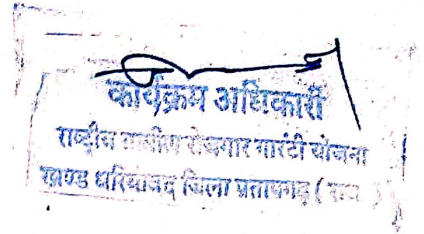 कार्यक्रम अधिकारी
राष्ट्रीय ग्रामीण रोजगार गारंटी योजना
खण्ड धरियावद जिला प्रतापगढ़ ( राज